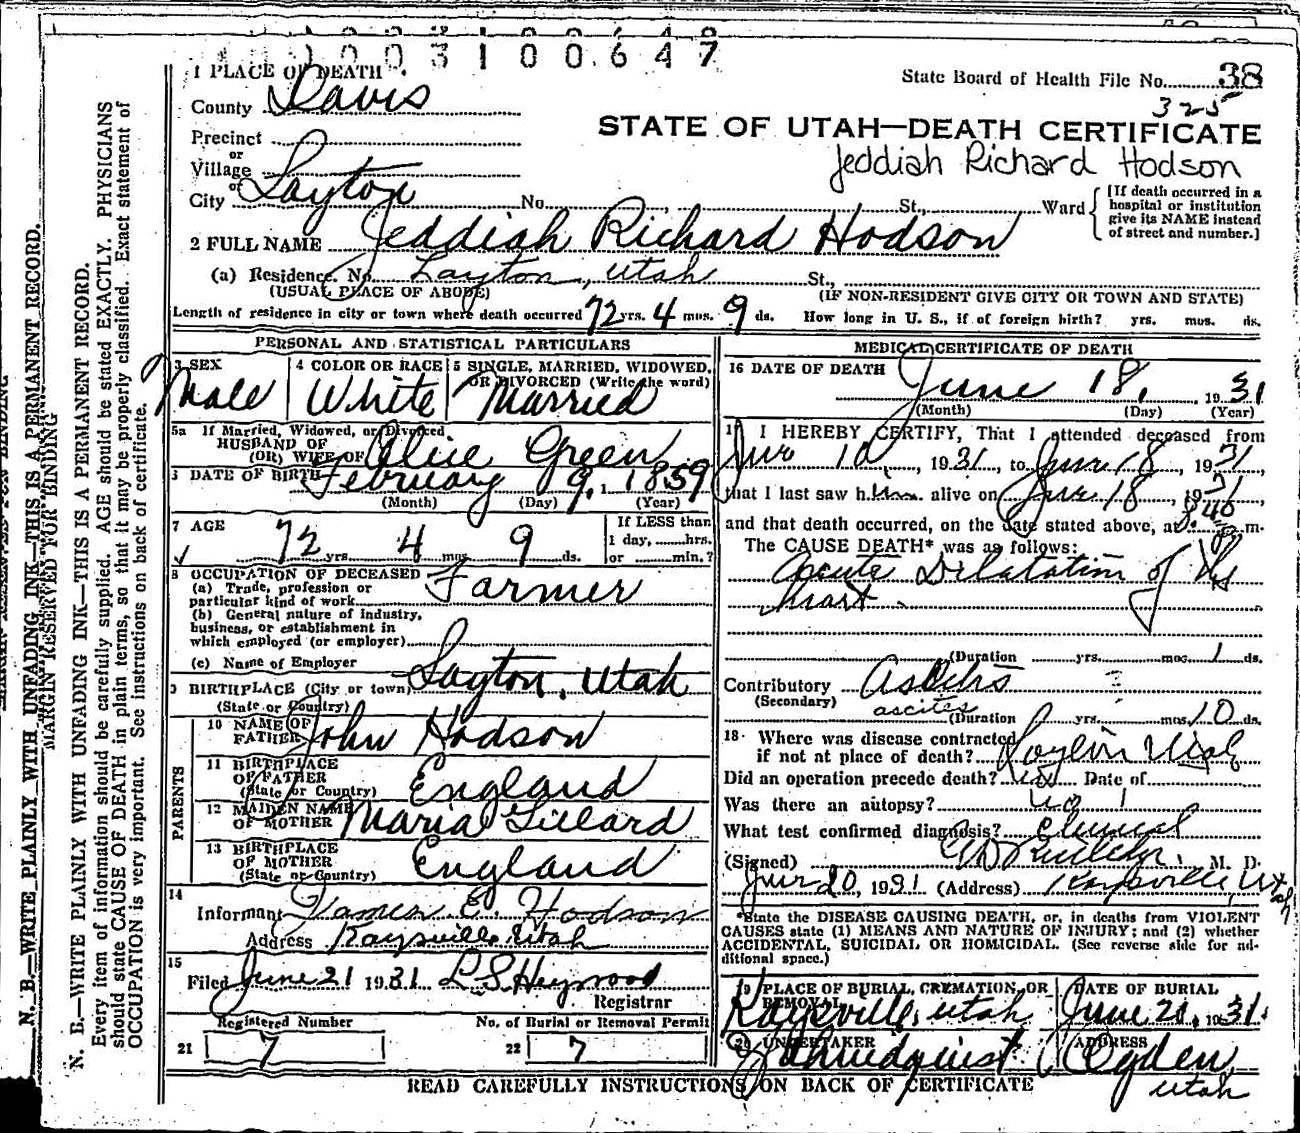 1003100647
State Board of Health File No. 38
325
STATE OF UTAH—DEATH CERTIFICATE
Jeddiah Richard Hodson
1 PLACE OF DEATH
County Davis
Precinct
or
Village
or
City Layton No. St., Ward
[If death occurred in a
hospital or institution
give its NAME instead
of street and number.]
2 FULL NAME Jeddiah Richard Hodson
(a) Residence. No. Layton, Utah St.,
(USUAL PLACE OF ABODE) (IF NON-RESIDENT GIVE CITY OR TOWN AND STATE)
Length of residence in city or town where death occurred 72 yrs. 4 mos. 9 ds. How long in U. S., if of foreign birth? yrs. mos. ds.
PERSONAL AND STATISTICAL PARTICULARS
3 SEX Male
4 COLOR OR RACE White
5 SINGLE, MARRIED, WIDOWED,
OR DIVORCED (Write the word)
Married
5a If Married, Widowed, or Divorced
HUSBAND OF
(OR) WIFE OF Alice Green
6 DATE OF BIRTH February 9, 1859
(Month) (Day) (Year)
7 AGE
72 yrs. 4 mos. 9 ds.
If LESS than
1 day, hrs.
or min.?
8 OCCUPATION OF DECEASED
(a) Trade, profession or
particular kind of work Farmer
(b) General nature of industry,
business, or establishment in
which employed (or employer)
(c) Name of Employer
9 BIRTHPLACE (City or town) Layton, Utah
(State or Country)
PARENTS
10 NAME OF
FATHER John Hodson
11 BIRTHPLACE
OF FATHER
(State or Country) England
12 MAIDEN NAME
OF MOTHER Maria Gillard
13 BIRTHPLACE
OF MOTHER
(State or Country) England
14
Informant James E. Hodson
Address Kaysville Utah
15
Filed June 21 1931 L. S. Heywood
Registrar
Registered Number
21 7
No. of Burial or Removal Permit
22 7
MEDICAL CERTIFICATE OF DEATH
16 DATE OF DEATH June 18, 1931
(Month) (Day) (Year)
17 I HEREBY CERTIFY, That I attended deceased from
June 10, 1931, to June 18, 1931,
that I last saw him alive on June 18, 1931
and that death occurred, on the date stated above, at 8:40 p. m.
The CAUSE DEATH* was as follows:
Acute Dilatation of the
heart.
(Duration yrs. mos. 1 ds.
Contributory Ascitis
(Secondary) ascites
(Duration yrs. mos. 10 ds.
18 Where was disease contracted
if not at place of death? Layton Utah
Did an operation precede death? no Date of
Was there an autopsy? no
What test confirmed diagnosis? Clinical
(Signed) M. D.
June 20, 1931 (Address) Kaysville, Utah
*State the DISEASE CAUSING DEATH, or, in deaths from VIOLENT
CAUSES state (1) MEANS AND NATURE OF INJURY; and (2) whether
ACCIDENTAL, SUICIDAL OR HOMICIDAL. (See reverse side for ad-
ditional space.)
19 PLACE OF BURIAL, CREMATION, OR
REMOVAL
Kaysville, Utah
DATE OF BURIAL
June 21, 1931.
20 UNDERTAKER
Lindquist
ADDRESS
Ogden,
Utah
READ CAREFULLY INSTRUCTIONS ON BACK OF CERTIFICATE
N. B.—WRITE PLAINLY WITH UNFADING INK—THIS IS A PERMANENT RECORD.
MARGIN RESERVED FOR BINDING
N. B.—WRITE PLAINLY WITH UNFADING INK—THIS IS A PERMANENT RECORD.
Every item of information should be carefully supplied. AGE should be stated EXACTLY. PHYSICIANS
should state CAUSE OF DEATH in plain terms, so that it may be properly classified. Exact statement of
OCCUPATION is very important. See instructions on back of certificate.